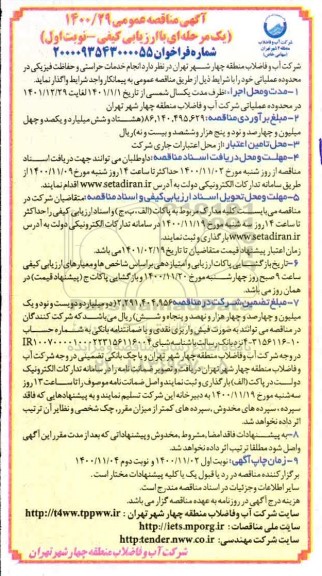 آگهی مناقصه عمومی ۱۴۰۰/۲۹
(یک مرحله ای با ارزیابی کیفی - نوبت اول)
شماره فراخوان ۲۰۰۰۰۹۳۵۴۳۰۰۰۰۵۵
شرکت آب و فاضلاب منطقه چهار شهر تهران در نظر دارد انجام خدمات حراستی و حفاظت فیزیکی در
محدوده عملیاتی خود را با شرایط ذیل از طریق مناقصه عمومی به پیمانکار واجد شرایط واگذار نماید.
۱-مدت و محل اجرا: ظرف مدت یکسال شمسی از تاریخ ۱۴۰۱/۱/۱ لغایت ۱۴۰۱/۱۲/۲۹
در محدوده عملیاتی شرکت آب و فاضلاب منطقه چهار شهر تهران
۲-مبلغ برآوردی مناقصه: ۸۶,۱۴۰,۴۹۵,۶۲۹(هشتاد و شش میلیارد و یکصد و چهل
میلیون و چهارصد و نود و پنج هزار و ششصد و بیست و نه) ریال
۳-محل تامین اعتبار: از محل اعتبارات جاری شرکت
۴-مهلت و محل دریافت اسناد مناقصه: داوطلبان می توانند جهت دریافت اسناد
مناقصه از روز شنبه مورخ ۱۴۰۰/۱۱/۰۲ حداکثر تا ساعت ۱۴ روز شنبه مورخ ۱۴۰۰/۱۱/۰۹ از
طریق سامانه تدارکات الکترونیکی دولت به آدرس www.setadiran.ir اقدام نمایند.
۵-مهلت و محل تحویل اسناد ارزیابی کیفی و اسناد مناقصه: متقاضیان شرکت در
مناقصه می بایست کلیه مدارک مربوط به پاکات (الف، ب، ج) و اسناد ارزیابی کیفی را حداکثر
تا ساعت ۱۴ روز سه شنبه مورخ ۱۴۰۰/۱۱/۱۹ در سامانه تدارکات الکترونیکی دولت به آدرس
www.setadiran.ir بارگذاری و ثبت نمایند.
زمان اعتبار پیشنهاد قیمت متقاضیان تا تاریخ ۱۴۰۱/۰۲/۱۹ می باشد.
۶-تاریخ بازگشایی پاکات ارزیابی و امتیازدهی بر اساس شاخص ها و معیارهای ارزیابی کیفی
ساعت ۹ صبح روز چهارشنبه مورخ ۱۴۰۰/۱۱/۲۰ و بازگشایی پاکات ج (پیشنهاد قیمت) در
همان روز می باشد.
۷-مبلغ تضمین شرکت در مناقصه ۲,۲۹۱,۴۰۴,۹۵۶(دو میلیارد و دویست و نود و یک
میلیون و چهارصد و چهار هزار و نهصد و پنجاه و شش) ریال می باشد که شرکت کنندگان
در مناقصه می توانند به صورت فیش واریزی نقدی و یا ضمانتنامه بانکی به شماره حساب
در وجه شرکت آب و فاضلاب منطقه چهار شهر تهران و یا چک بانکی تضمینی در وجه شرکت آب
دولت در پاکت (الف) بارگذاری و ثبت نمایند و اصل ضمانت نامه موصوف را تا ساعت ۱۳ روز
سه شنبه مورخ ۱۴۰۰/۱۱/۱۹ به دبیرخانه این شرکت تسلیم نمایند و به پیشنهادهایی که فاقد
سپرده، سپرده های مخدوش، سپرده های کمتر از میزان مقرر، چک شخصی و نظایر آن ترتیب
اثر داده نخواهد شد.
۸-به پیشنهادات فاقد امضا، مشروط، مخدوش و پیشنهاداتی که بعد از مدت مقرر این آگهی
واصل شود مطلقا ترتیب اثر داده نخواهد شد.
۹-زمان چاپ آگهی: نوبت اول ۱۴۰۰/۱۱/۰۲ و نوبت دوم ۱۴۰۰/۱۱/۰۴
برگزار کننده مناقصه در رد یا قبول یک یا کلیه پیشنهادات مختار است.
سایر اطلاعات و جزئیات در اسناد مناقصه مندرج است.
هزینه درج آگهی در روزنامه به عهده مناقصه گزار می باشد.
سایت شرکت آب و فاضلاب منطقه چهار شهر تهران : http://t4ww.tppww.ir
سایت ملی مناقصات: http://iets.mporg.ir
سایت شرکت مهندسی: http:tender.nww.co.ir
شرکت آب و فاضلاب منطقه چهار شهر تهران